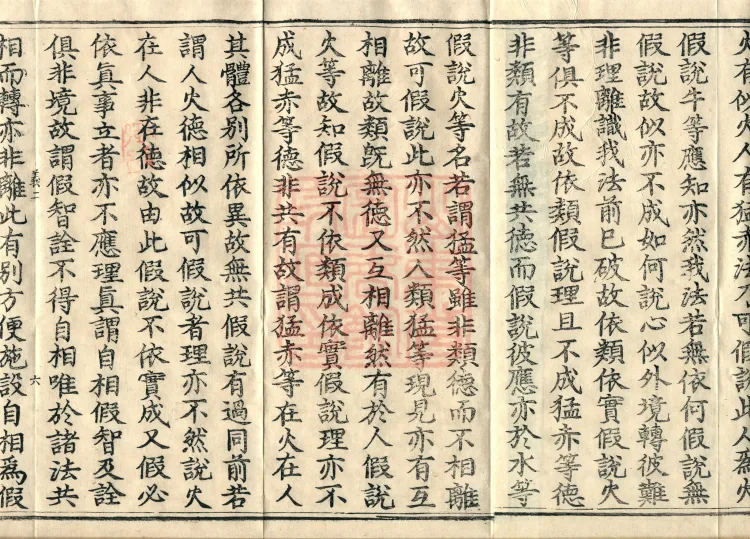 火有似火人有猛赤法乃可假說此人爲火
假說牛等應知亦然我法若無依何假說無
假說故似亦不成如何說心似外境轉彼難
非理離識我法前已破故依類依實假說火
等俱不成故依類假說理且不成猛赤等德
非類有故若無共德而假說彼應亦於水等
假說火等名若謂猛等雖非類德而不相離
故可假說此亦不然人類猛等現見亦有互
相離故類旣無德又互相離然有於人假說
火等故知假說不依類成依實假說理亦不
成猛赤等德非共有故謂猛赤等在火在人
其體各別所依異故無共假說有過同前若
謂人火德相似故可假說者理亦不然說火
在人非在德故由此假說不依實成又假必
依眞事立者亦不應理眞謂自相假智及詮
俱非境故謂假智詮不得自相唯於諸法共
二 六
相而轉亦非離此有別方便施設自相爲假